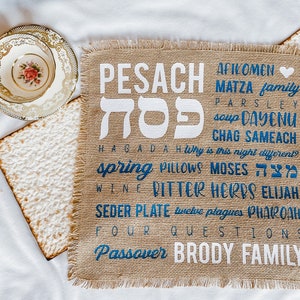 PESACH
פסח
AFIKOMEN
MATZA family
PARSLEY
soup DAYENU
CHAG SAMEACH
HAGADAH Why is this night different?
spring PILLOWS MOSES מצה
WINE BITTER HERBS ELIJAH
SEDER PLATE twelve plagues PHAROAH
FOUR QUESTIONS
Passover BRODY FAMILY